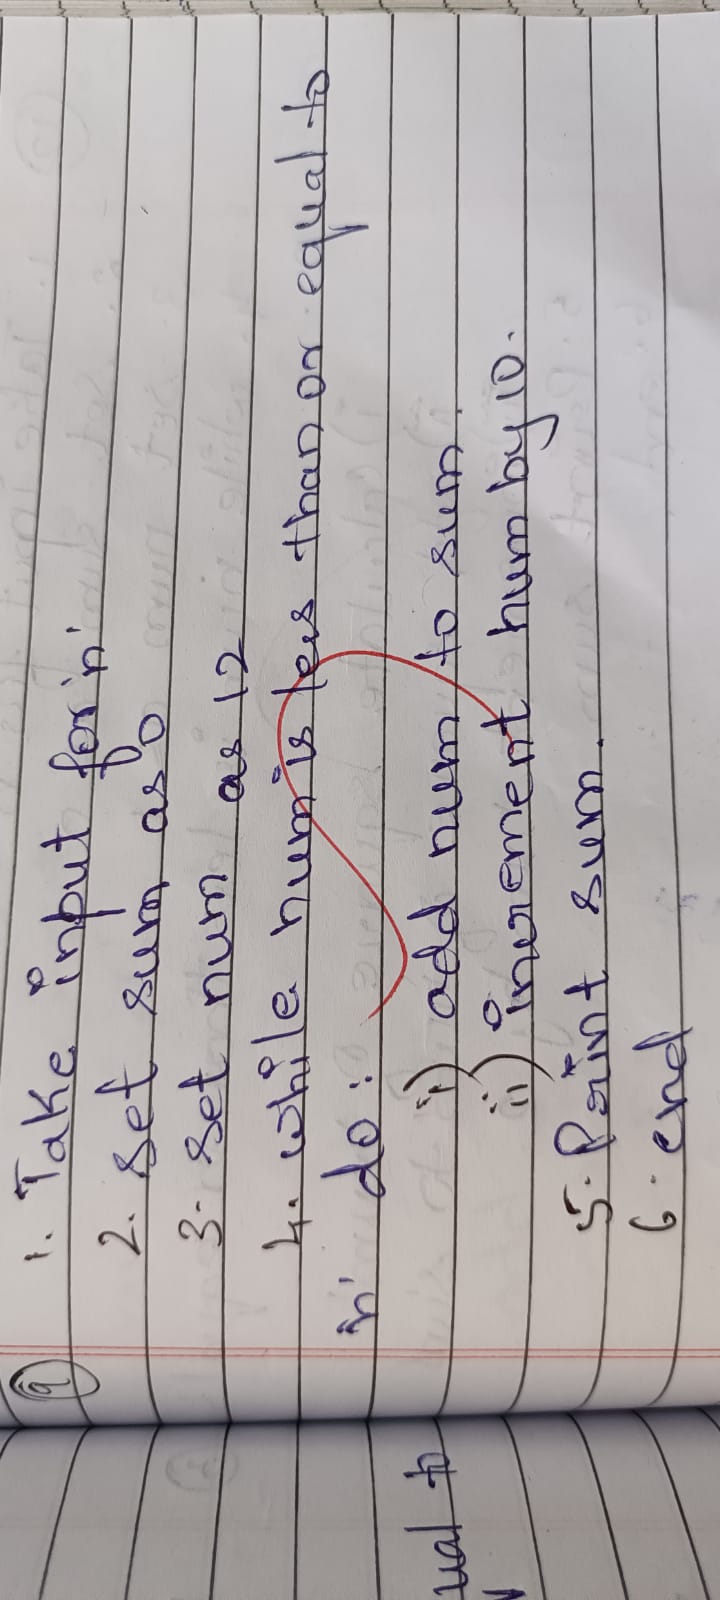 9
1. Take input for 'n'
2. Set sum as 0
3. Set num as 12
4. while num is less than or equal to
'n' do :
i) add num to sum.
ii) increment num by 10.
5. Print sum.
6. end
ual to